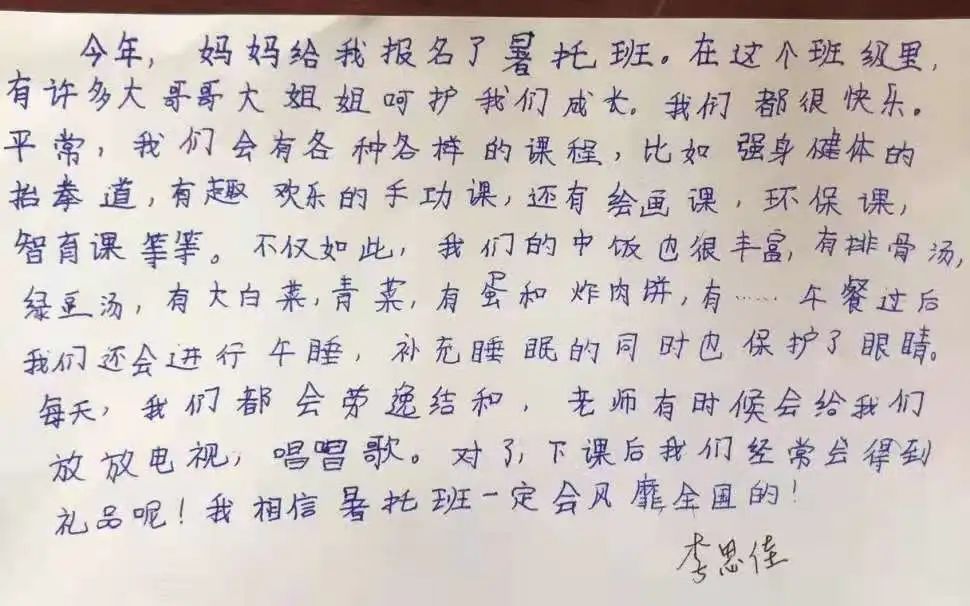 今年，妈妈给我报名了暑托班。在这个班级里，
有许多大哥哥大姐姐呵护我们成长。我们都很快乐。
平常，我们会有各种各样的课程，比如强身健体的
抬拳道，有趣欢乐的手功课，还有绘画课，环保课，
智育课等等。不仅如此，我们的中饭也很丰富，有排骨汤，
绿豆汤，有大白菜，青菜，有蛋和炸肉饼，有……午餐过后
我们还会进行午睡，补充睡眠的同时也保护了眼睛。
每天，我们都会劳逸结和，老师有时候会给我们
放放电视，唱唱歌。对了，下课后我们经常会得到
礼品呢！我相信暑托班一定会风靡全国的！
李思佳